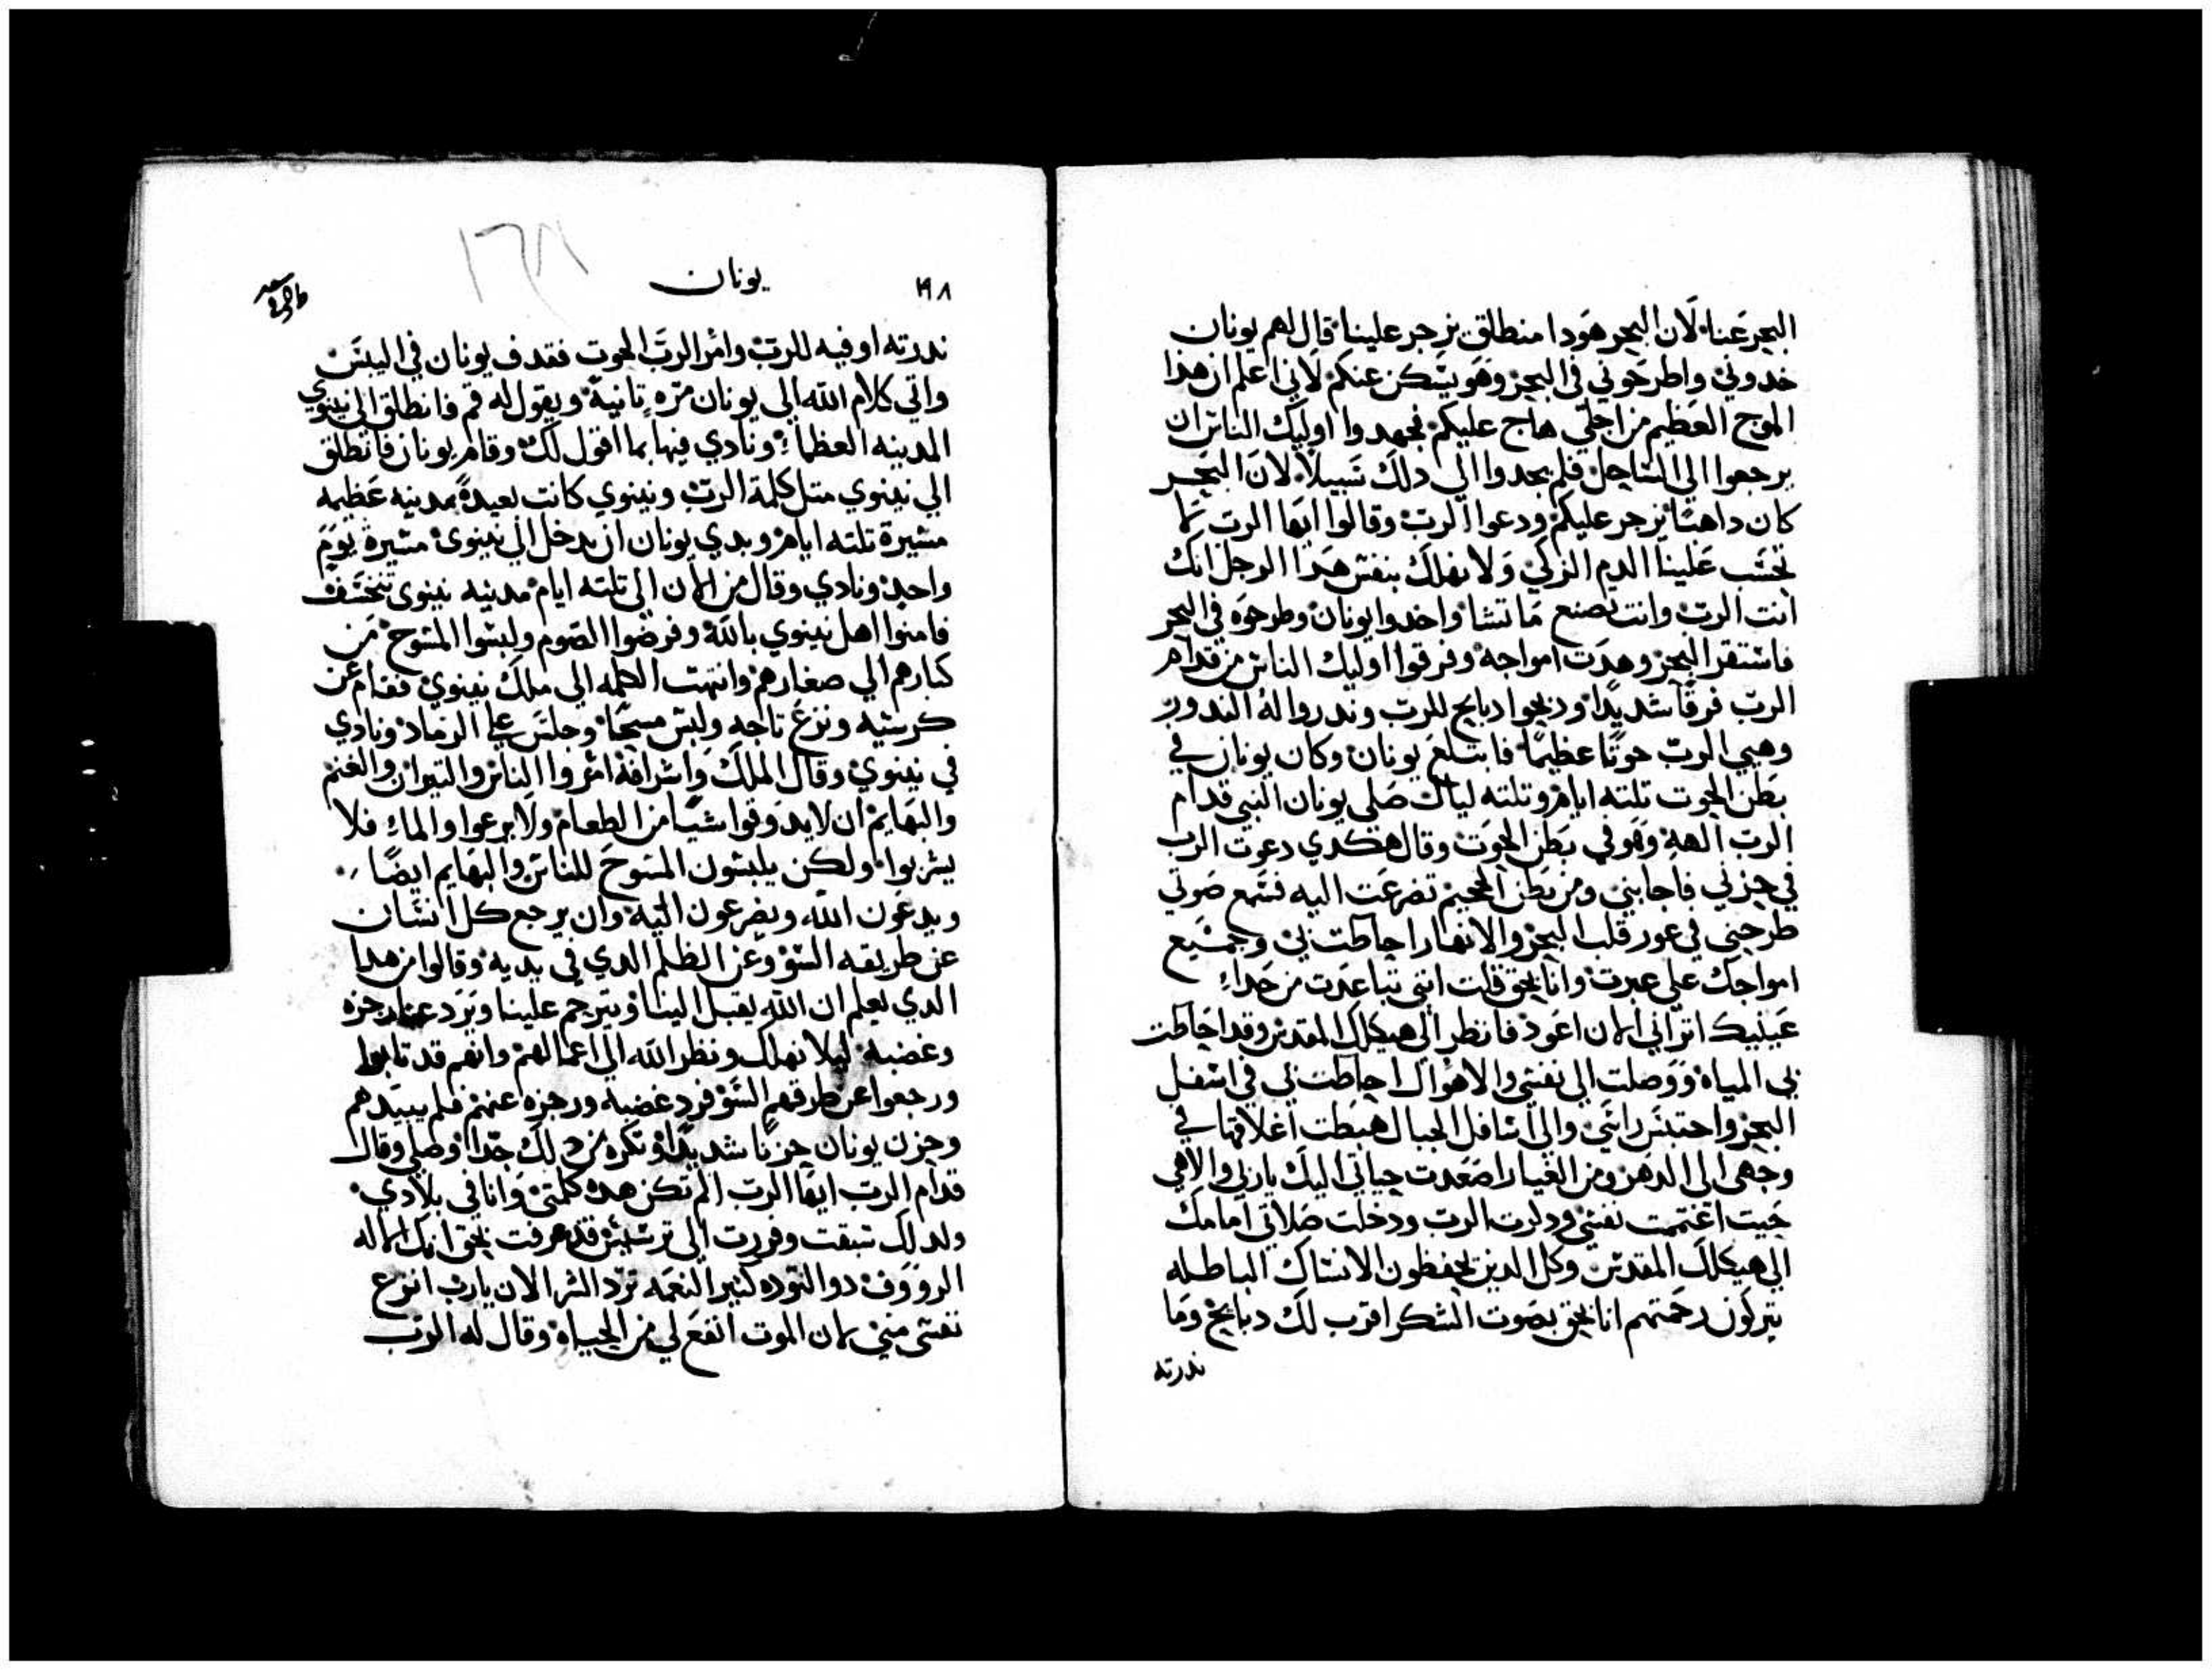 البحر عنا لان البحر هودا منطلق يزجر علينا قال لهم يونان
خدوني واطرحوني في البحر وهو يسكن عنكم لاني اعلم ان هذا
الموج العظيم من اجلي هاج عليكم فجهدوا اوليك الناس ان
يرجعوا الي الساحل فلم يجدوا الي دلك سبيلا لان البحر
كان داهبا يزجر عليهم ودعوا الرب وقالوا ايها الرب لا
تحسب علينا الدم الزكي ولا نهلك بنفس هدا الرجل انك
انت الرب وانت تصنع ما تشا واخدوا يونان وطرحوه في البحر
فاستقر البحر وهدت امواجه وفرقوا اوليك الناس من قدام
الرب فرقا شديدا ودبحوا دبايح للرب وندروا له الندور
وهيي الرب حوتا عظيما فابتلع يونان وكان يونان في
بطن الحوت تلته ايام وتلته ليال صلي يونان النبي قدام
الرب الهه وهو في بطن الحوت وقال هكدي دعوت الرب
في حزني فاجابني ومن بطن الجحيم تضرعت اليه فسمع صوتي
طرحني في عور قلب البحر والانهار احاطت بي وجميع
امواجك علي عبرت وانا بحق قلت انني تباعدت من حداء
عينيك اتراني الان اعود فانظر الي هيكلك المقدس وقد احاطت
بي المياه ووصلت الي نفسي والاهوال احاطت بي في اسفل
البحر واحتبس راسي والي اسافل الجبال هبطت اغلاقها في
وجهي الي الدهر ومن الغيار اصعدت حياتي اليك ياربي والاهي
حيت اغتممت نفسي ودكرت الرب ودخلت صلاتي امامك
الي هيكلك المقدس وكل الدين يحفظون الانساك الباطله
يتركون رحمتهم انا بحق بصوت الشكر اقرب لك دبايح وما
ندرته
١٩٨
يونان
١٦٨
ندرته اوفيه للرب وامر الرب الحوت فقدف يونان في اليبس
واتي كلام الله الي يونان مره تانية ويقول له قم فانطلق الي نينوي
المدينه العظما ونادي فيها بما اقول لك وقام يونان فانطلق
الي نينوي متل كلمة الرب ونينوي كانت بعيدة مدينه عظيمه
مسيرة تلته ايام وبدي يونان ان يدخل الي نينوي مسيرة يوم
واحد ونادي وقال من الان الي تلته ايام مدينه نينوي تنخسف
فامنوا اهل نينوي بالله وفرضوا الصوم ولبسوا المسوح من
كبارهم الي صغارهم وانتهت الكلمه الي ملك نينوي فقام عن
كرسيه ونزع تاجه ولبس مسحا وجلس علي الرماد ونادي
في نينوي وقال الملك واشرافه امروا الناس والتيران والغنم
والبهايم ان لا يدوقوا شيا من الطعام ولا يرعوا والماء فلا
يشربوا ولكن يلبسون المسوح للناس والبهايم ايضا
ويدعون الله ويضرعون اليه وان يرجع كل انسان
عن طريقه السو وعن الظلم الدي في يديه وقالوا من هدا
الدي يعلم ان الله يقبل الينا ويترحم علينا ويرد عنا رجزه
وغضبه ليلا نهلك ونظر الله الي اعمالهم وانهم قد تابوا
ورجعوا عن طرقهم السو فرد غضبه ورجزه عنهم فلم يبيدهم
وحزن يونان حزنا شديدا وتكره من دلك جدا وصلي وقال
قدام الرب ايها الرب الم تكن هده كلمتي وانا في بلادي
ولدلك سبقت وفررت الي ترسيس قد عرفت بحق انك الاله
الرووف دو التوده كتير النعمه ترد الشر الان يارب انزع
نفسي مني لان الموت انفع لي من الحياه وقال له الرب